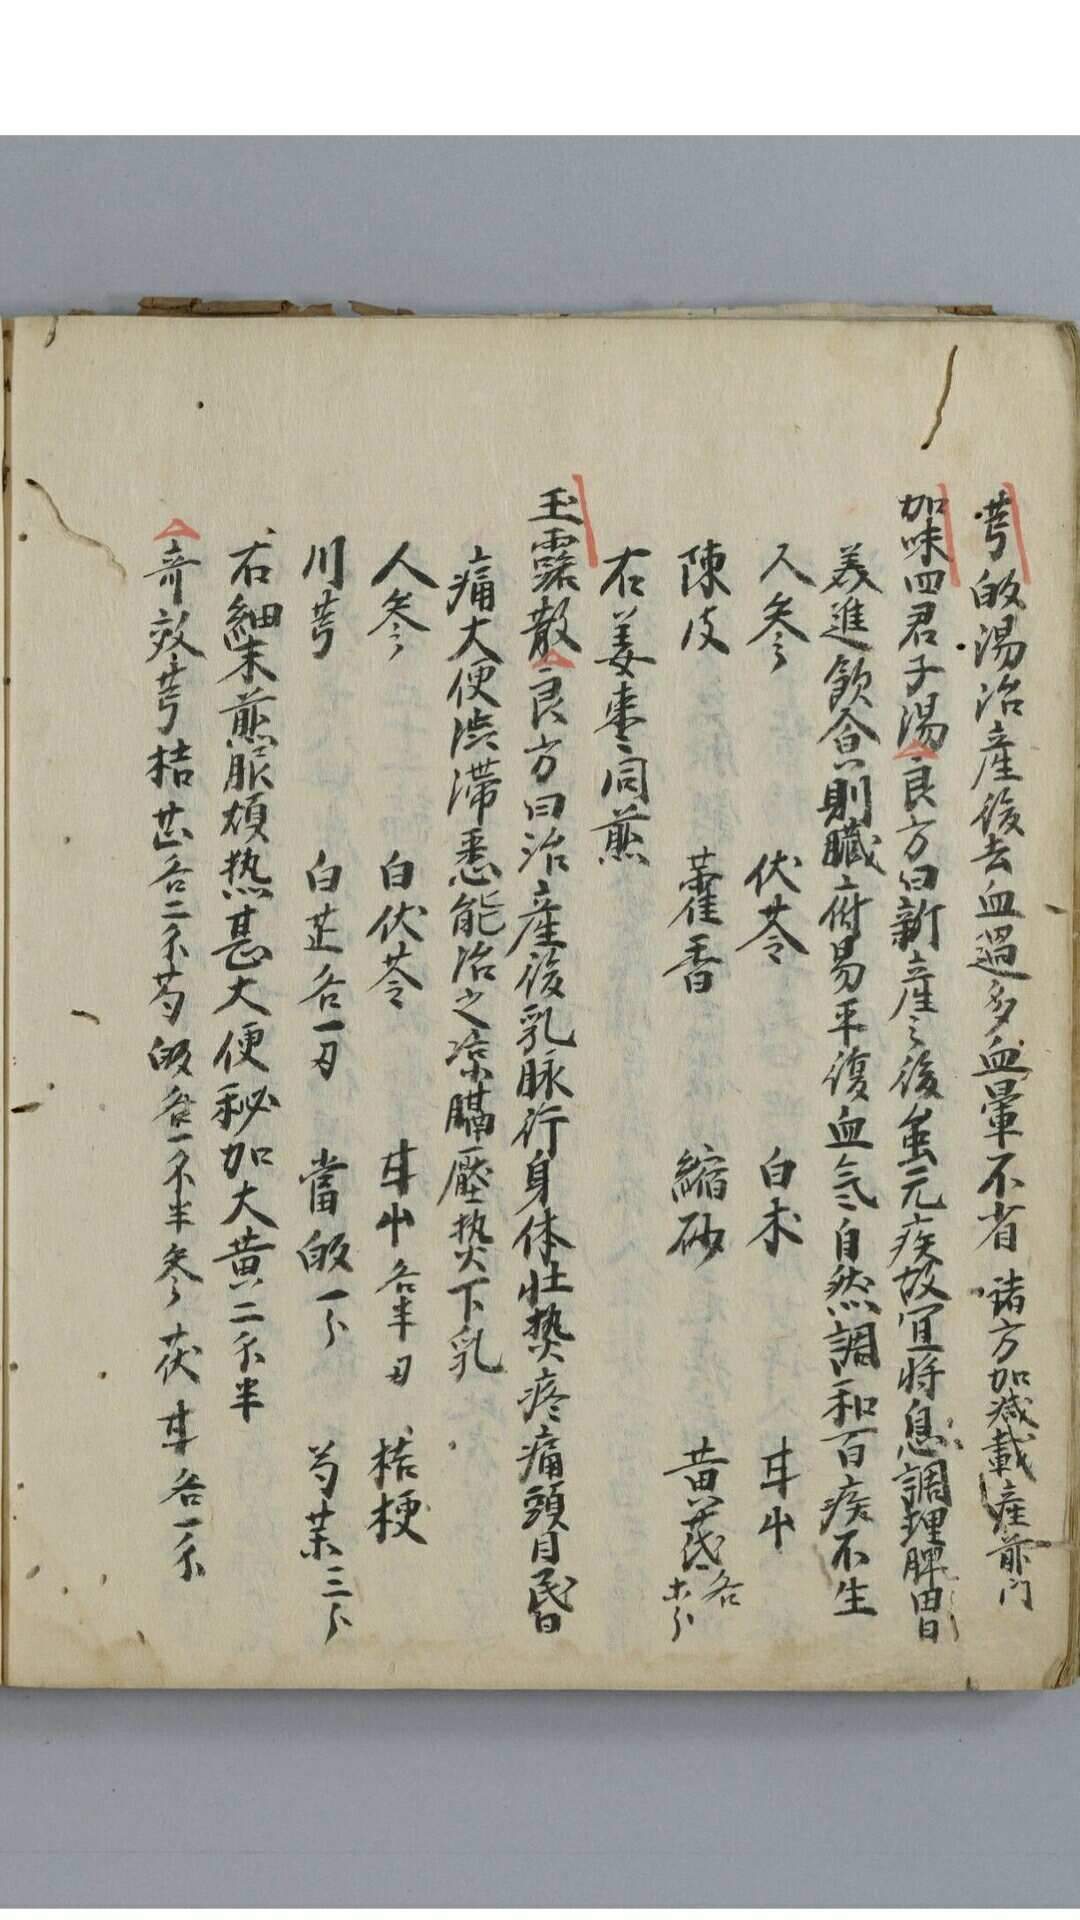 芎皈湯治産後去血過多血暈不省 諸方加減載産前門
加味四君子湯良方曰新産之後虽元疾故宜將息調理脾胃
美進飲食則臓腑易平復血気自然調和百疾不生
人参 伏苓 白朮 甘艸
陳皮 藿香 縮砂 黄茋各
右姜棗同煎
玉露散良方曰治産後乳脉行身体壮热疼痛頭目昏
痛大便渋滞悉能治之凉膈壓热下乳
人参 白伏苓 甘艸各半刃 桔梗
川芎 白芷各一刃 當皈一分 芍薬三分
右細末煎服煩热甚大便秘加大黄二不半
奇效芎桔芷各二不芍皈各一不半参茯甘各一不